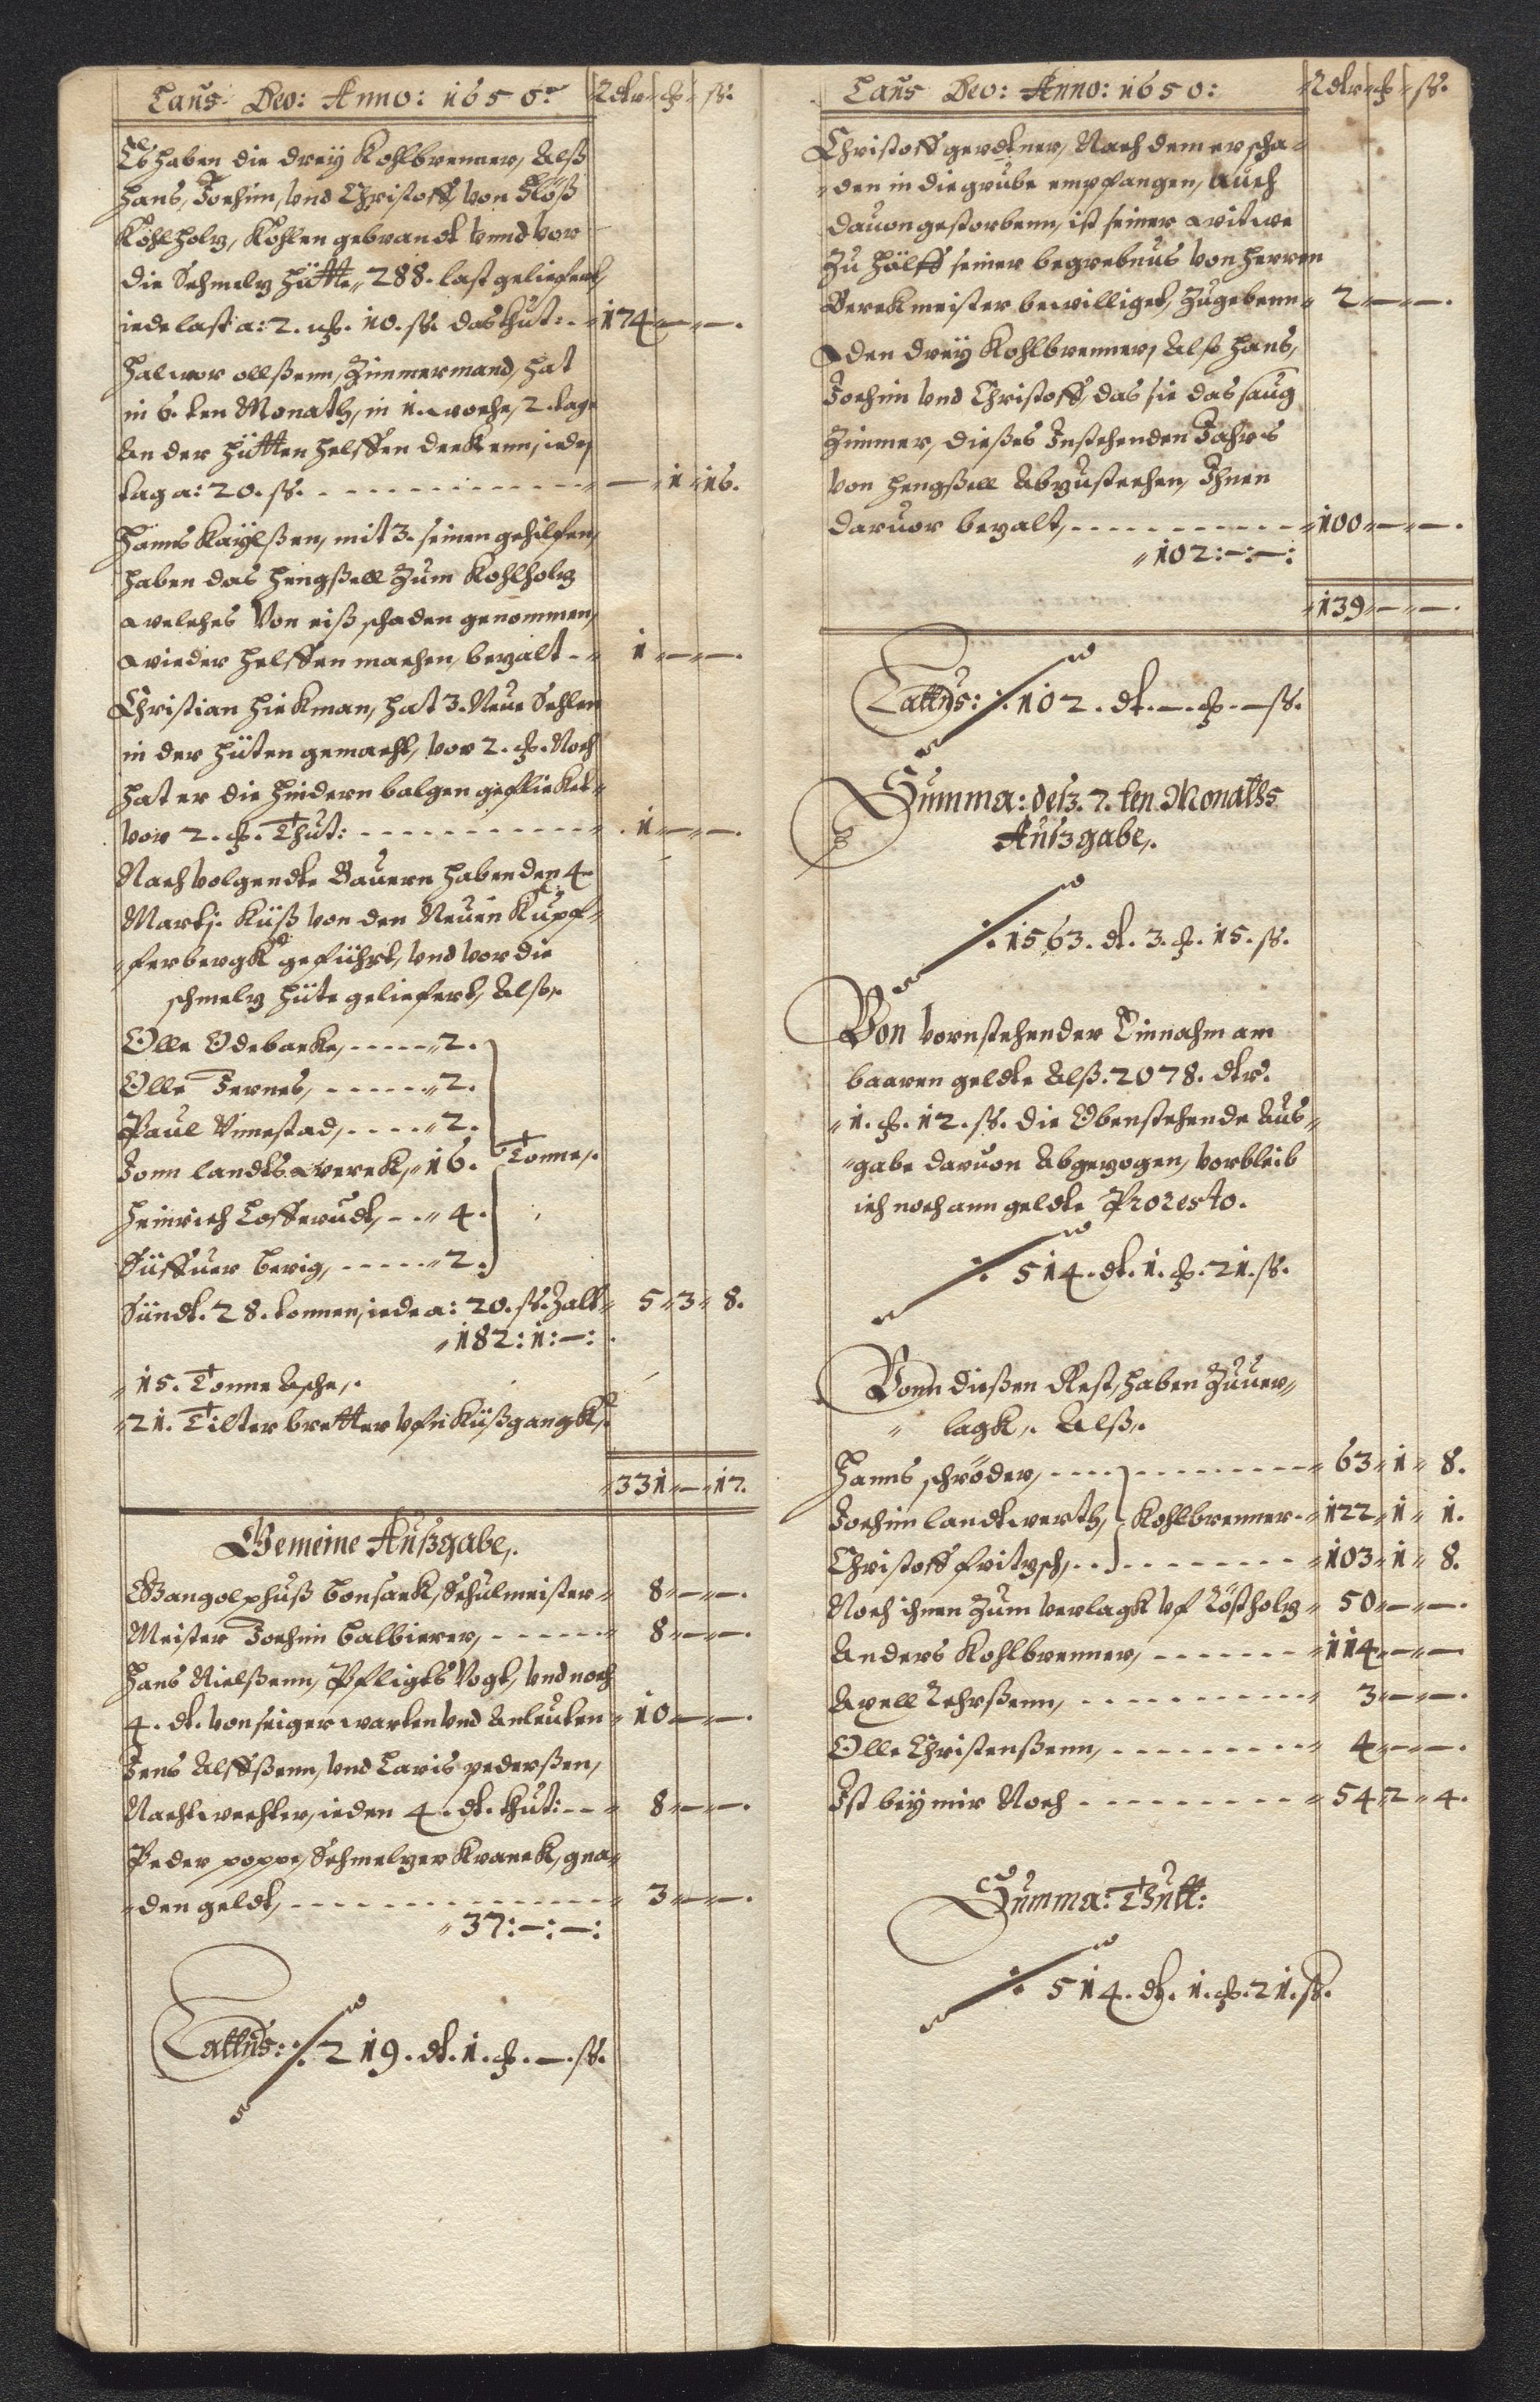 Laus Deo: Anno: 1650: Rdtr ♃ ß.
Es haben die dreÿ Kohlbrenner, Alß
Hans, Jochim, vnd Christoff, von Flöß
Kohlholtz, Kohlen gebrandt vnnd vor
die Schmeltz Hütte, 288. last geliefert,
iede last a: 2. ♃. 10. ß. das thut: 174 — —.
Halwor ollßenn, Zimmermand, hat
in 6. ten Monath, in 1. woche, 2. tage
An der Hütten helffen deckenn, iede
tag a: 20. ß. — 1 16.
Hanns Kaÿlßen, mit 3. seinen gehilfen,
haben das Hengßell Zum Kohlholtz
welches Von eiß schaden genommen,
wieder helffen machen, bezalt 1 — —.
Christian Hickman, hat 3. Neue Sehlen
in der Hüten gemacht, vor 2. ♃. Noch
hat er die Hindern balgen geflicket
vor 2. ♃. Thut: 1 — —.
Nach Volgendte Bauern haben den 4
Martj. Küß von den Neuen Kupf-
ferbergk geführt, vnd vor die
schmeltz Hüte geliefert, Alß,.
Olle Odebacke, 2.
Olle Jernes, 2.
Paul Vimestad, 2.
Jonn landtswerck, 16. Tonne,.
Heinrich Lofferudt, 4.
Süffuer Berig, 2.
Sündt. 28. tonnen, iede a: 20. ß. Zalt 5 3 8.
182: 1: —:
15. Tonne Asche,.
21. Tilter bretter vfn Küßgangk,.
331 — 17.
Gemeine Außgabe,.
Wangolphuß Bonsack, Schulmeister 8 — —.
Meister Jochim Balbierer, 8 — —.
Hans Nielßenn, Pfligts Vogt, vnd noch
4. dt. von seiger warten vnd Anleuten 10 — —.
Jens Alffßenn, vnd Laris pederßen,
Nachtwechter, ieden 4. dt. thut: 8 — —.
Peder poppe, Schmeltzer Kranck, gna-
den geldt, 3 — —.
37: —: —:
Lattus: ⁒ 219. dt. 1. ♃. —. ß.
Laus Deo: Anno: 1650: Rdtr ♃ ß.
Christoff gerdtner, Nach dem er scha-
den in die grube empfangen, Auch
dauon gestorbenn, ist seiner witwe
Zu Hülff seiner begrebnus von Herren
Berckmeister bewilliget, Zugebenn 2 — —.
den dreÿ Kohlbrenner, Alß Hans,
Jochim vnd Christoff, das sie das saug
Zimmer, dießes Instehenden Jahrs
von Hengßell Abzustechen, Ihnen
daruor bezalt, 100 — —.
102: —: —:
139 — —.
Lattus: ⁒ 102. dt. —. ♃. — ß.
Summa: deß. 7. ten Monatts
Außgabe,.
⁒ 1563. dt. 3. ♃. 15. ß.
Von vornstehender Einnahm am
baaren geldte Alß. 2078. dtr.
1. ♃. 12. ß. die Obenstehende Aus-
gabe daruon Abgezogen, vorbleib
ich noch ann geldte Pro resto.
⁒ 514. dt. 1. ♃. 21. ß.
Vonn dießen Rest, haben Zuuer-
lagk,. Alß,.
Hanns schröder, 63 1 8.
Jochim landtwerth, Kohlbrenner 122 1 1.
Christoff fritzsch, 103 1 8.
Noch ihnen Zum verlagk vf Röstholtz 50 — —.
Anders Kohlbrenner, 114 — —
Axell Lehrßenn, 3 — —.
Olle Christenßenn, 4 — —.
Ist beÿ mir Noch 54 2 4.
Summa: Thutt:
⁒ 514. dt. 1. ♃. 21. ß.